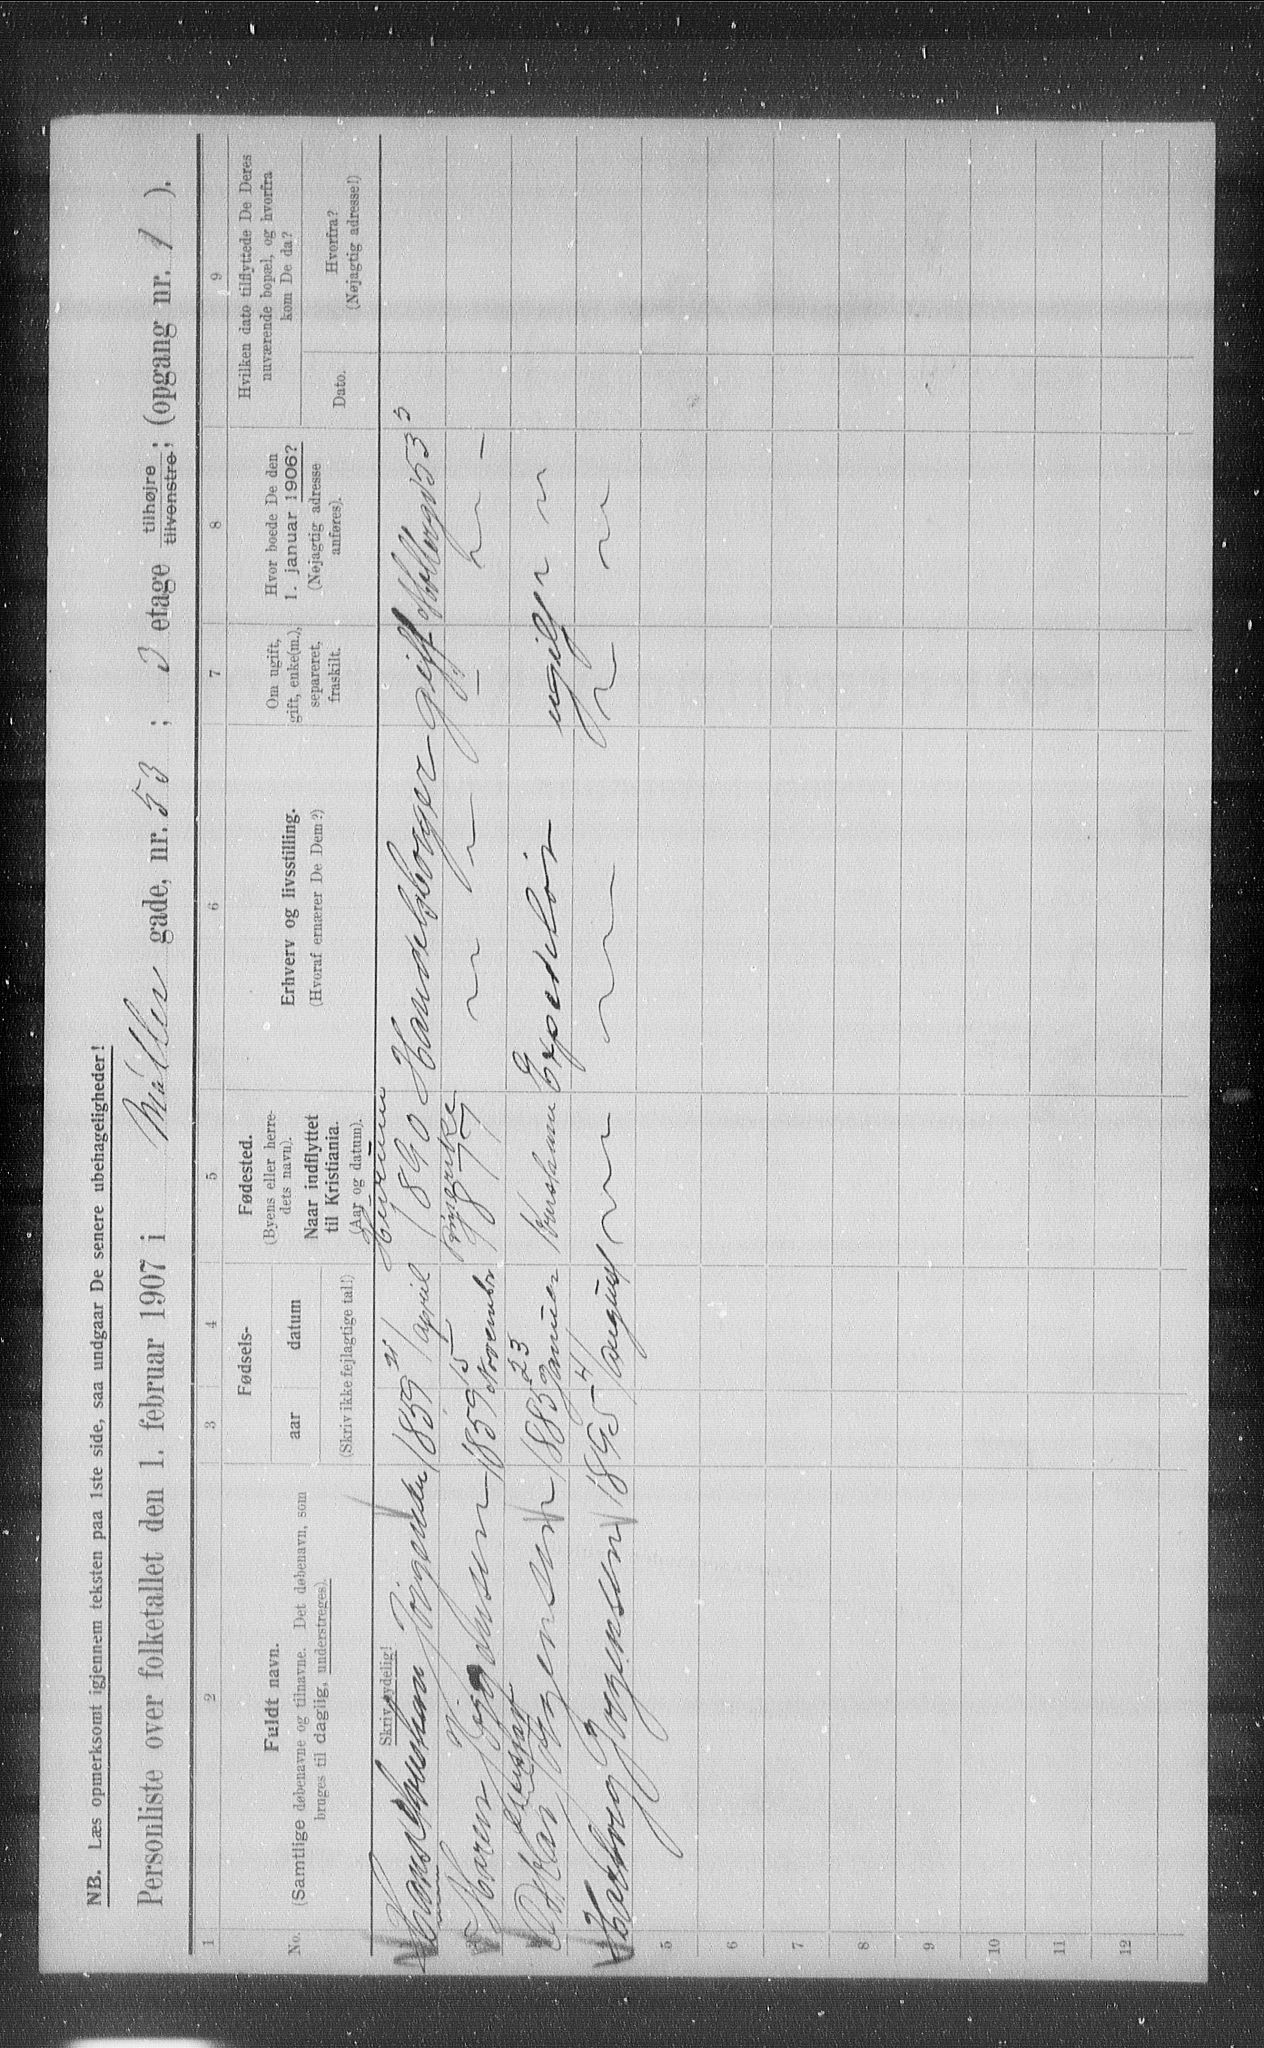 NB. Læs opmerksomt igjennem teksten paa 1ste side, saa undgaar De senere ubehageligheder!
Personliste over folketallet den 1. februar 1907 i Møller gade, nr. 53 ; 3 etage tilhøjre tilvenstre ; (opgang nr. 1 ).
1 2 3 4 5 6 7 8 9
No.
Fuldt navn.
(Samtlige døbenavne og tilnavne. Det døbenavn, som
bruges til daglig, understreges).
Skriv tydelig!
Fødsels-
aar datum
(Skriv ikke fejlagtige tal!)
Fødested.
(Byens eller herre-
dets navn).
Naar indflyttet
til Kristiania.
(Aar og datum).
Erhverv og livsstilling.
(Hvoraf ernærer De Dem?)
Om ugift,
gift, enke(m.),
separeret,
fraskilt.
Hvor boede De den
1. januar 1906?
(Nøjagtig adresse
anføres).
Hvilken dato tilflyttede De Deres
nuværende bopæl, og hvorfra
kom De da?
Dato.
Hvorfra?
(Nøjagtig adresse!)
Hans 1859 21 april 1890 Handelsborger gift Møllergd 53 3
Maren Jørgensen 1859 15 November Ringerike 1877 — —
3 Jørgensen 1885 23 Januar Kristiania Expeditør ugift
Jørgensen 1895 4 august
5
6
7
8
9
10
11
12